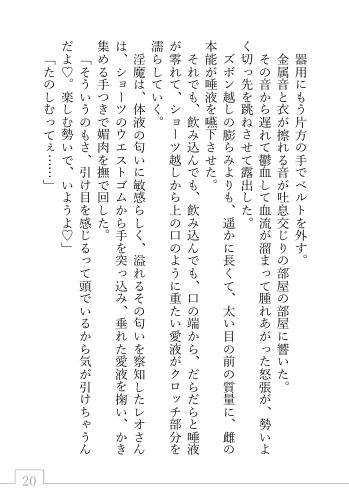 器用にもう片方の手でベルトを外す。
金属音と衣が擦れる音が吐息交じりの部屋の部屋に響いた。
その音から遅れて鬱血して血流が溜まって腫れあがった怒張が、勢いよ
く切っ先を跳ねさせて露出した。
ズボン越しの膨らみよりも、遥かに長くて、太い目の前の質量に、雌の
本能が唾液を嚥下させた。
それでも、飲み込んでも、飲み込んでも、口の端から、だらだらと唾液
が零れて、ショーツ越しから上の口のように重たい愛液がクロッチ部分を
濡らしていく。
淫魔は、体液の匂いに敏感らしく、溢れるその匂いを察知したレオさん
は、ショーツのウエストゴムから手を突っ込み、垂れた愛液を掬い、かき
集める手つきで媚肉を撫で回した。
「そういうのもさ、引け目を感じるって頭でいるから気が引けちゃうん
だよ♡。楽しむ勢いで、いようよ♡」
「たのしむってぇ……」
20